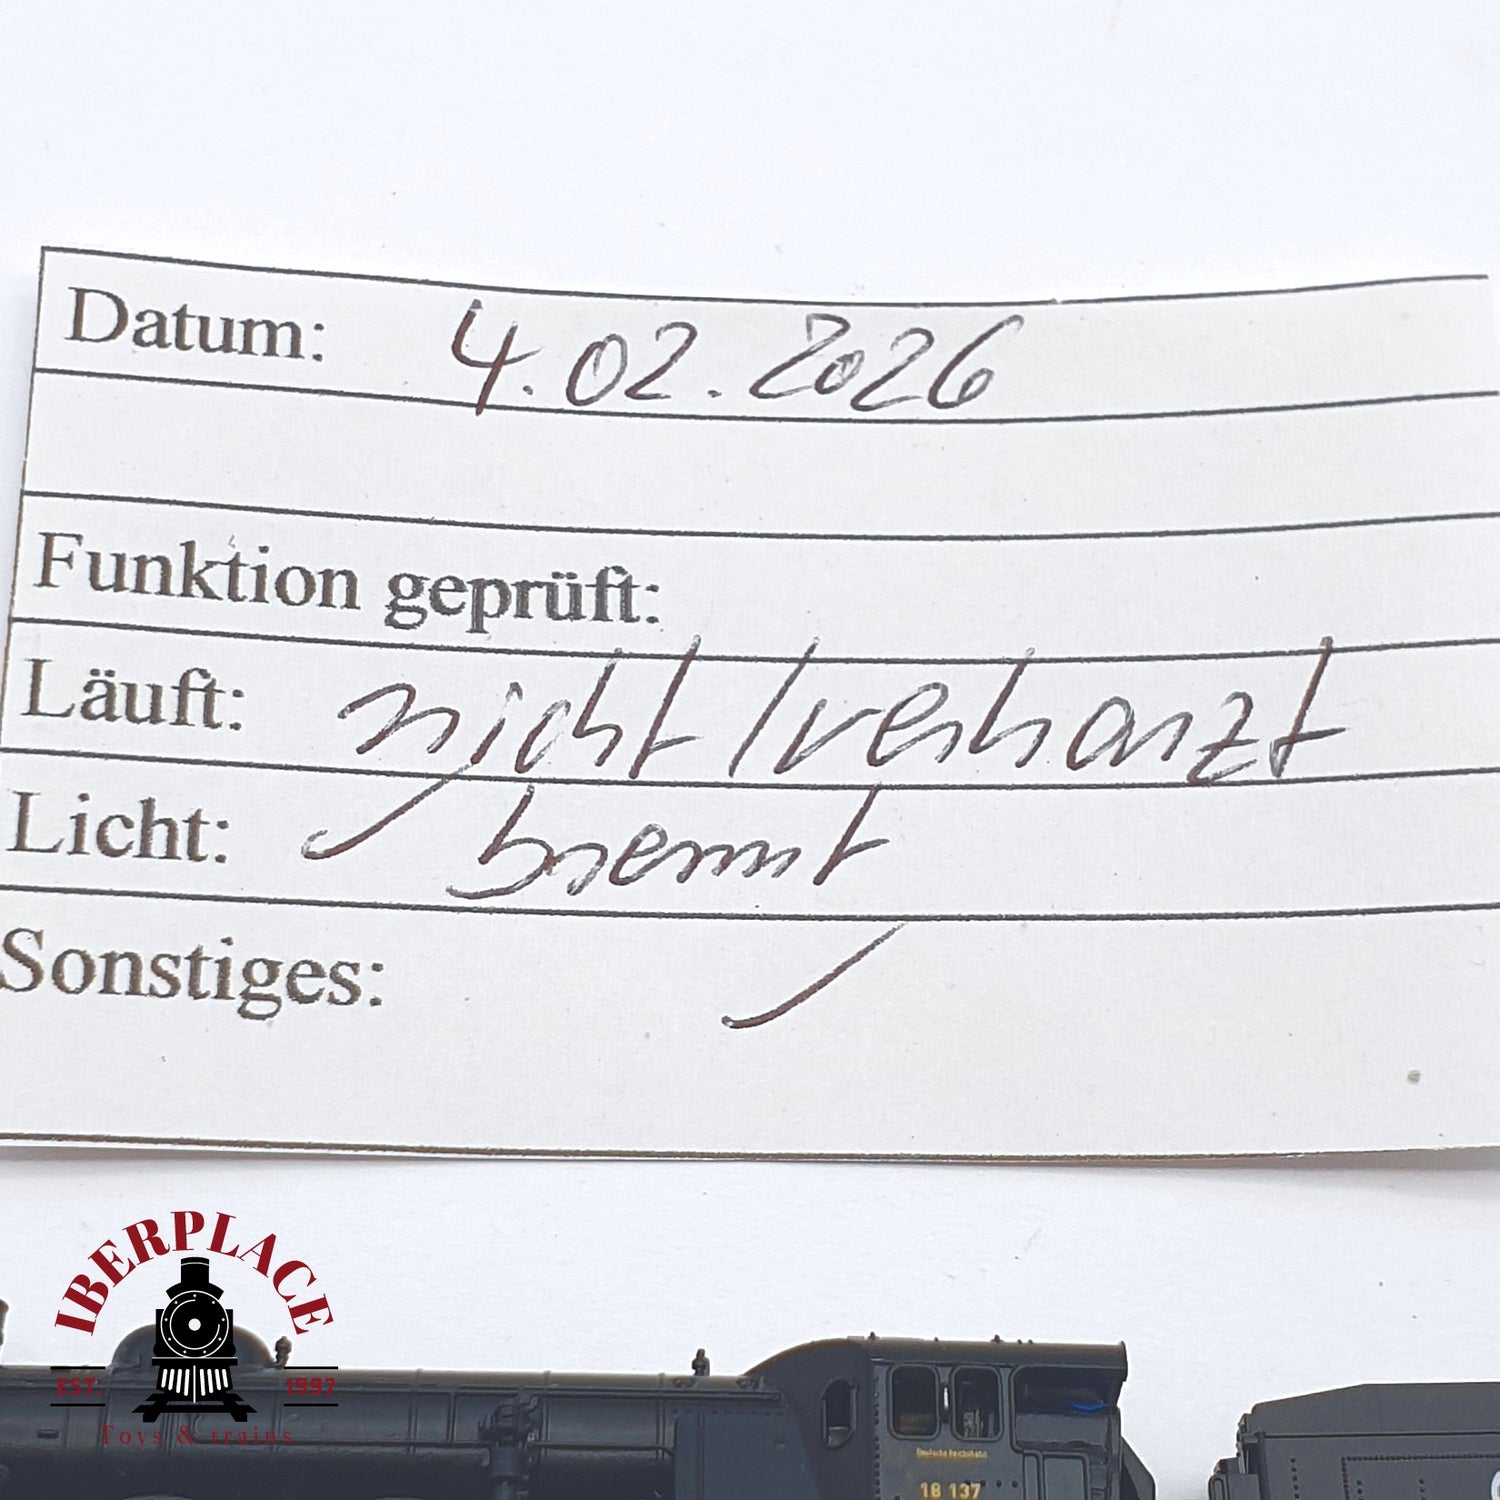 Datum: 4.02.2026
Funktion geprüft:
Läuft: nicht / verharzt
Licht: brennt
Sonstiges:
IBERPLACE
EST. 1997
Toys & trains
Deutsche Reichsbahn
18 137